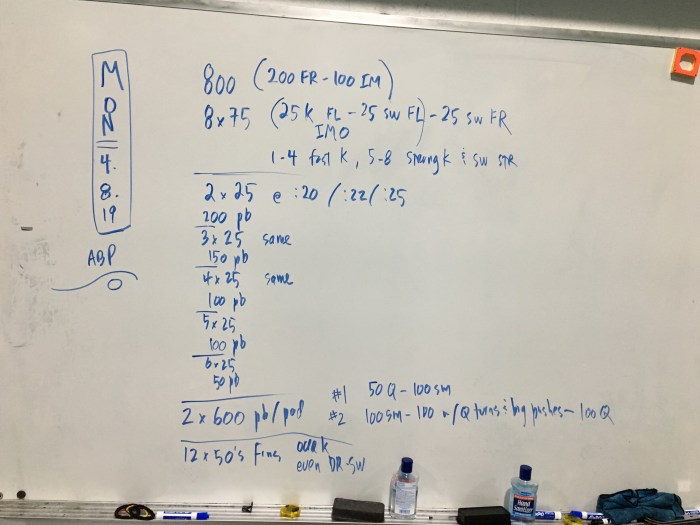 MON 4.8.19
ABP
800 (200 FR - 100 IM)
8 x 75 (25 K FL - 25 SW FL) - 25 SW FR
IMO
1-4 fast K, 5-8 strong K & SW STR
2 x 25 @ :20 / :22 / :25
200 pb
3 x 25 same
150 pb
4 x 25 same
100 pb
5 x 25
100 pb
6 x 25
50 pb
2 x 600 pb/pad #1 50 Q - 100 sm
#2 100 sm - 100 w/ Q turns & big pushes - 100 Q
12 x 50's Fins odd K
even DR-SW
Hand
Sanitizer
EXPO
EXPO